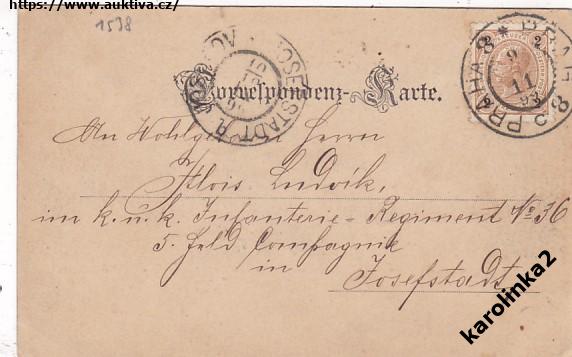 https://www.auktiva.cz/
1538
Correspondenz-Karte.
JOSEFSTADT
PRAHA 8 * PRAG 8
9
11
93
2
An Wohlgeboren Herrn
Alois Ludvík,
im k. u. k. Infanterie-Regiment No 36
5. Feld Compagnie
in
Josefstadt
karolinka2